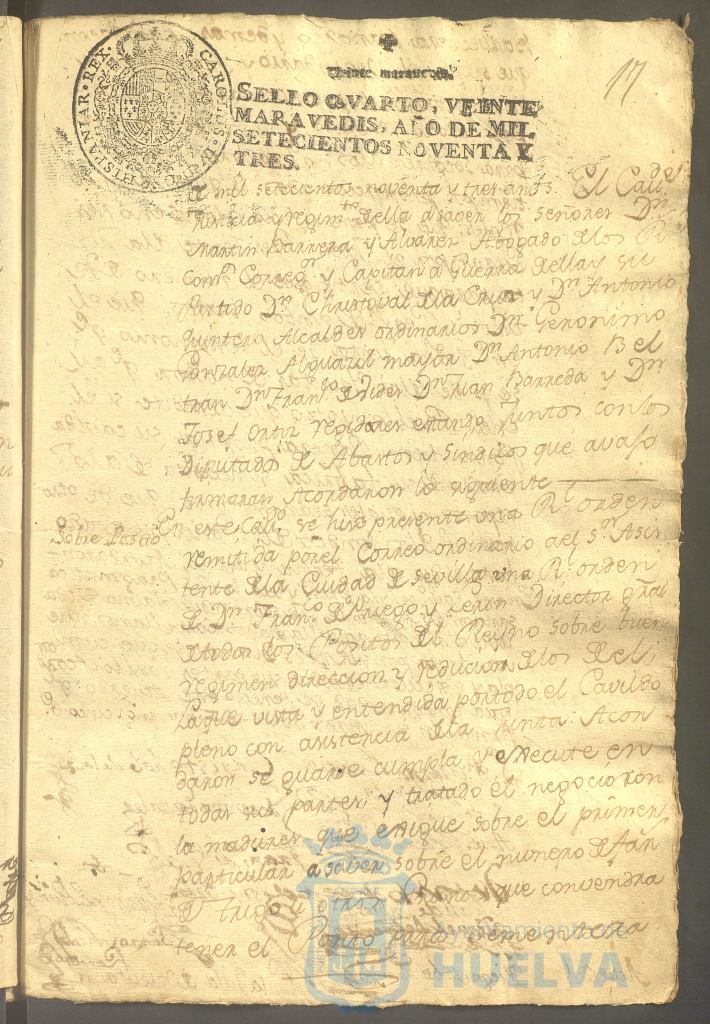 CAROLUS IV
HISPANIAR. REX.
17
Veinte maravedis.
SELLO QVARTO, VEINTE
MARAVEDIS, AÑO DE MIL
SETECIENTOS NOVENTA Y
TRES.
mil setecientos noventa y tres años. El Cav.do
Justicia y regim.to della asaver los señores D.n
Martin Barrera y Alvarez Abogado de los R.s
Con.s Correg.r y Capitan a Guerra dellas su
Partido D.n Christoval de la Cruz y D.n Antonio
Quintero Alcaldes ordinarios D.n Geronimo
Gonzalez Alguazil mayor D.n Antonio Bel
tran D.n Fran.co D.n Juan Barreda y D.n
Josef Ortiz regidores estando juntos con los
Diputados de Abastos y Sindicos que avajo
firmaran Acordaron lo siguiente
Sobre Posito
En este Cav.do se hizo presente una R.l orden
remitida por el Correo ordinario del S.or Asis
tente de la Ciudad de Sevilla una R.l orden
de D.n Fran.co de Priego y Leron Director gñal
de todos los Positos del Reyno sobre buen
regimen direccion y reducion de los
La que vista y entendida por todo el Cavildo
pleno con asistencia de la junta Acor
daron se guarde cumpla y execute en
todas sus partes, y tratado el negocio con
la madures que exige sobre el primer
particular asaver sobre el numero de fan.s
de trigo que convendra
tener el Posito para Sementera
Ayuntamiento de
HUELVA